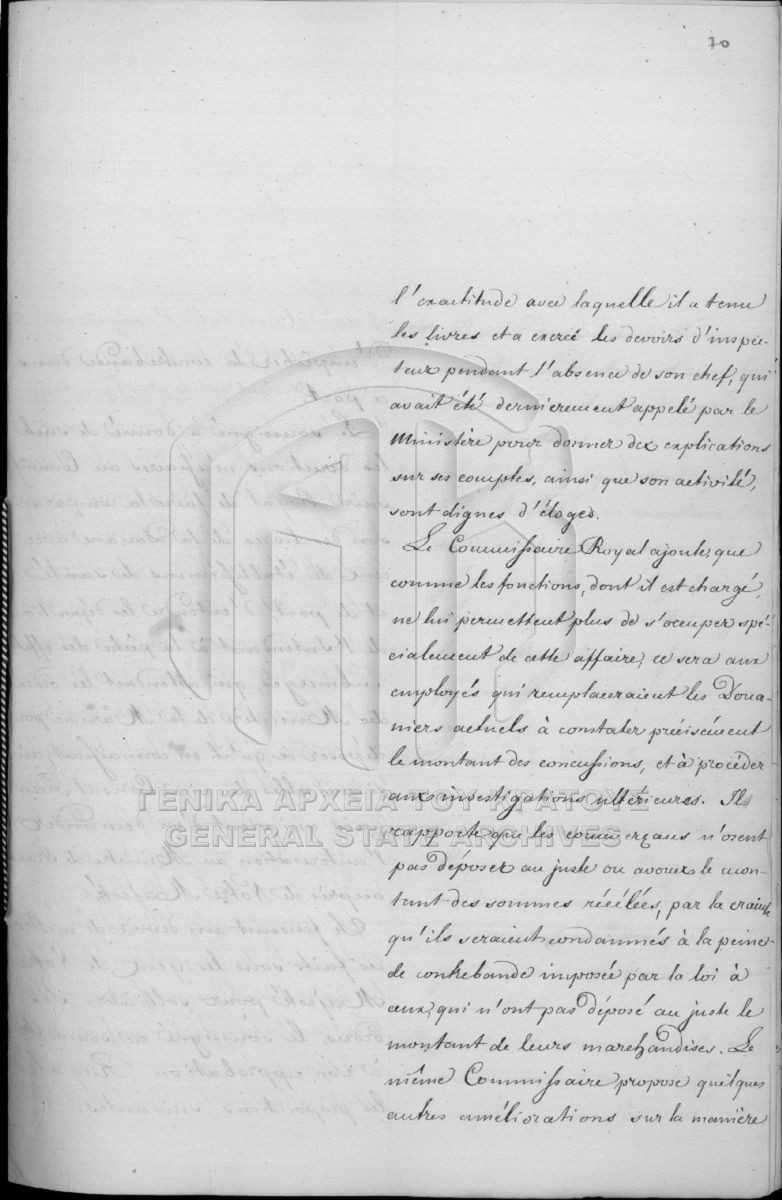 70
l'exactitude avec laquelle il a tenu
les livres et a exercé les devoirs d'inspec-
teur pendant l'absence de son chef, qui
avait été dernierement appelé par le
Ministère pour donner des explications
sur ses comptes, ainsi que son activité,
sont dignes d'éloges.
Le Commissaire Royal ajoute, que
comme les fonctions, dont il est chargé,
ne lui permettent plus de s'occuper spé-
cialement de cette affaire, ce sera aux
employés qui remplaceraient les Doua-
niers actuels à constater précisément
le montant des concussions, et à procéder
aux investigations ultérieures. Il
rapporte que les commerçans n'osent
pas déposer au juste ou avouer le mon-
tant des sommes récélées, par la crainte
qu'ils seraient condamnés à la peine
de contrebande imposée par la loi à
ceux, qui n'ont pas déposé au juste le
montant de leurs marchandises. Le
même Commissaire propose quelques
autres améliorations sur la manière
ΓΕΝΙΚΑ ΑΡΧΕΙΑ ΤΟΥ ΚΡΑΤΟΥΣ
GENERAL STATE ARCHIVES